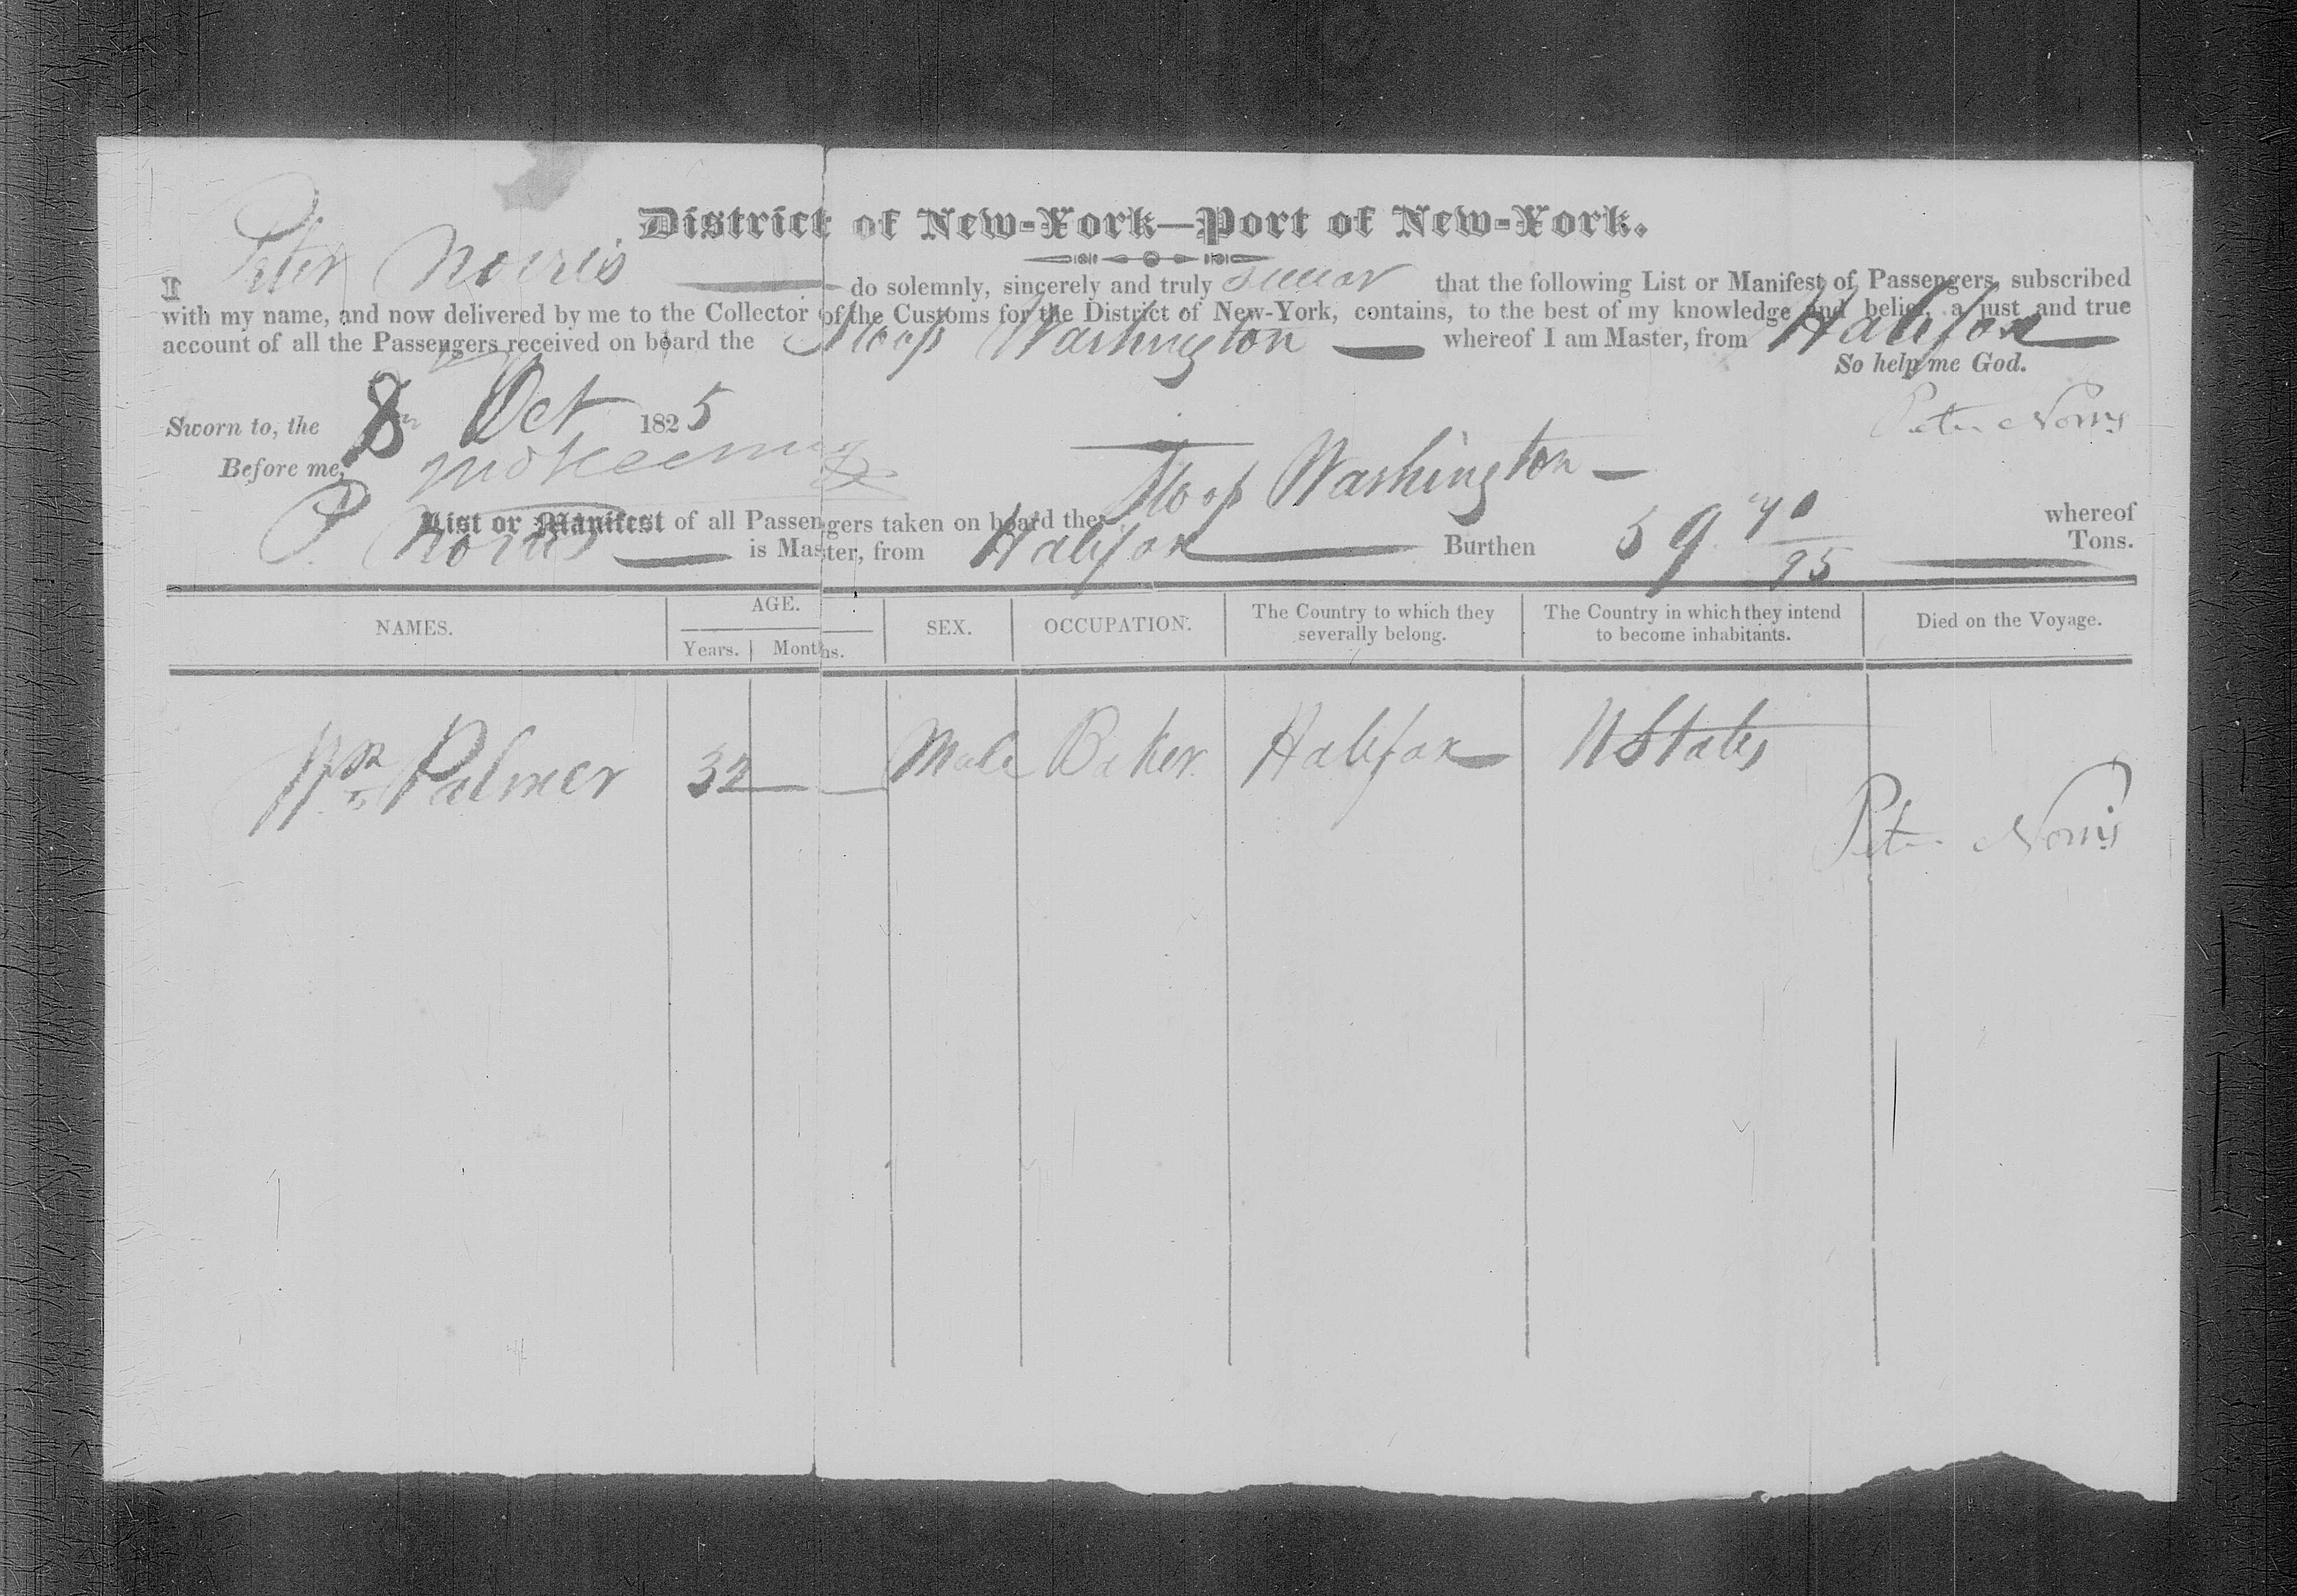 District of New-York—Port of New-York.
I Peter Norris do solemnly, sincerely and truly swear that the following List or Manifest of Passengers, subscribed
with my name, and now delivered by me to the Collector of the Customs for the District of New-York, contains, to the best of my knowledge and belief, a just and true
account of all the Passengers received on board the Sloop Washington whereof I am Master, from Halifax
So help me God.
Sworn to, the 8 Oct 1825
Peter Norris
Before me,
List or Manifest of all Passengers taken on board the Sloop Washington whereof
P Norris is Master, from Halifax Burthen 59 40/95 Tons.
NAMES. AGE. SEX. OCCUPATION. The Country to which they severally belong. The Country in which they intend to become inhabitants. Died on the Voyage.
Years. Months.
Wm Palmer 32 Male Baker Halifax U States
Peter Norris